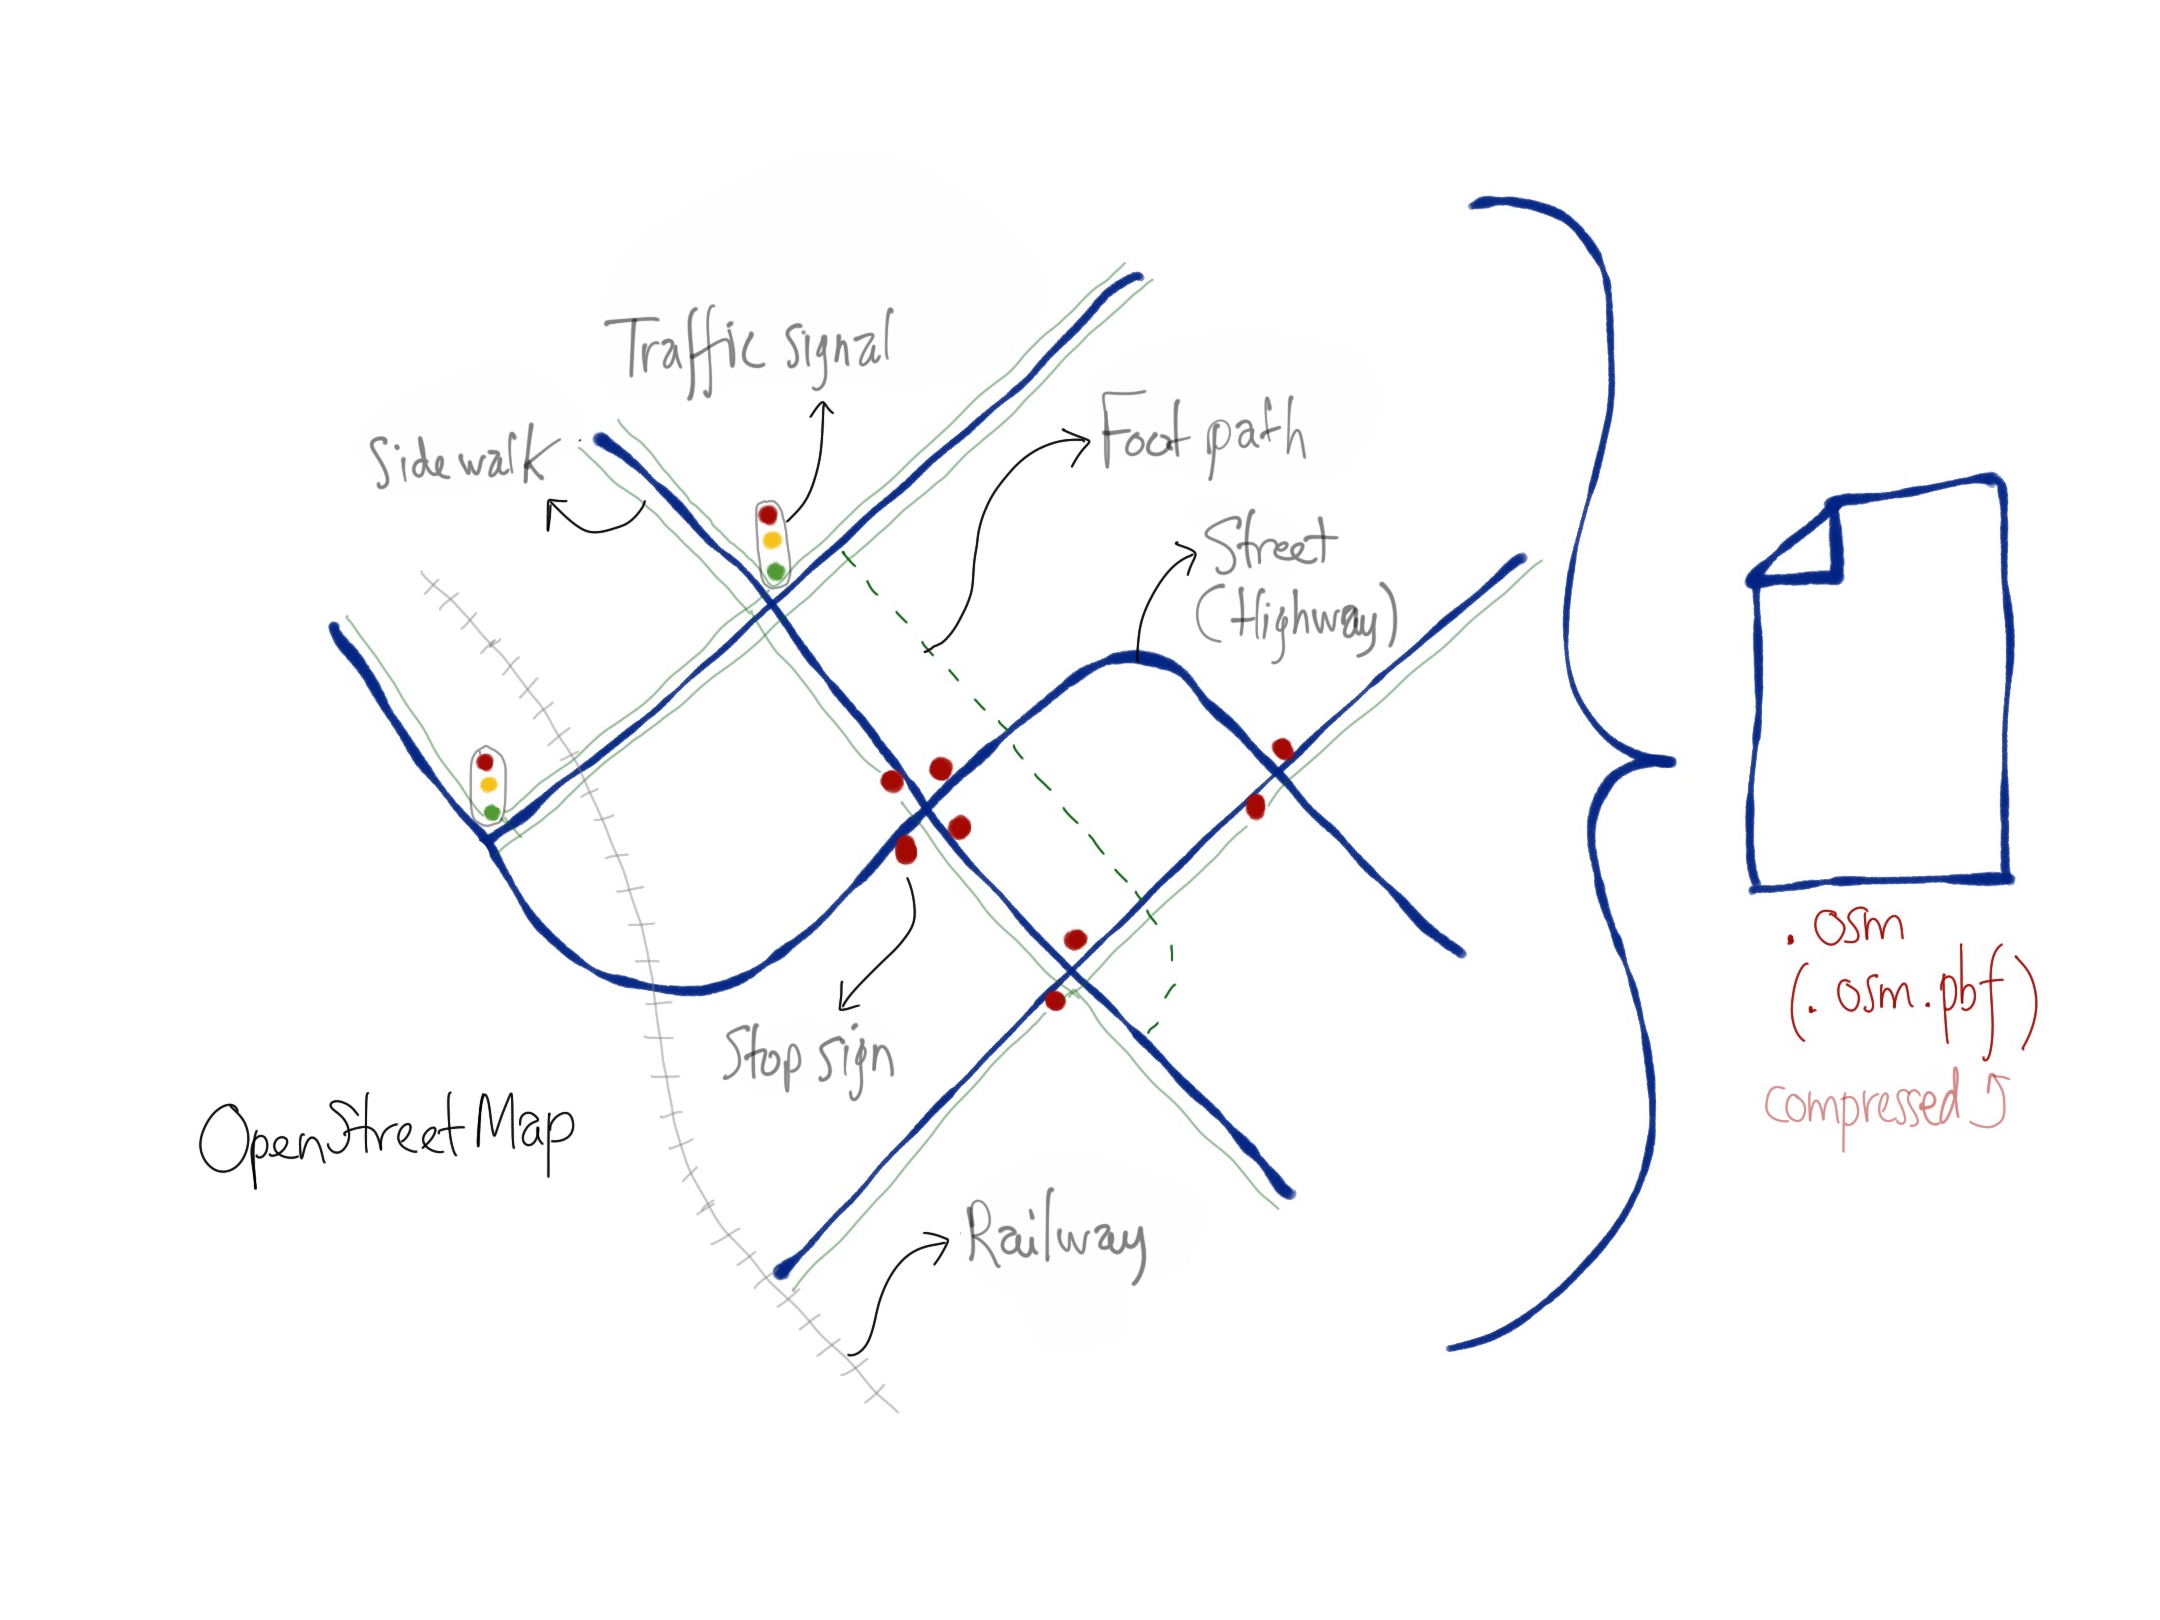 Traffic signal
Sidewalk
Foot path
Street
(Highway)
Stop sign
OpenStreetMap
Railway
.osm
(.osm.pbf)
compressed